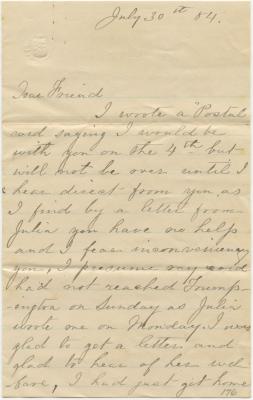 July 30th 84.
Dear Friend
I wrote a "Postal
card saying I would be
with you on the 4th but
will not be over until I
hear direct from you as
I find by a letter from
Julia you have no help
and I fear inconveniencing
you, I presume my card
had not reached Trump-
-ington on Sunday as Julia
wrote one on Monday. I was
glad to get a letter and
glad to hear of her wel-
fare, I had just got home
176